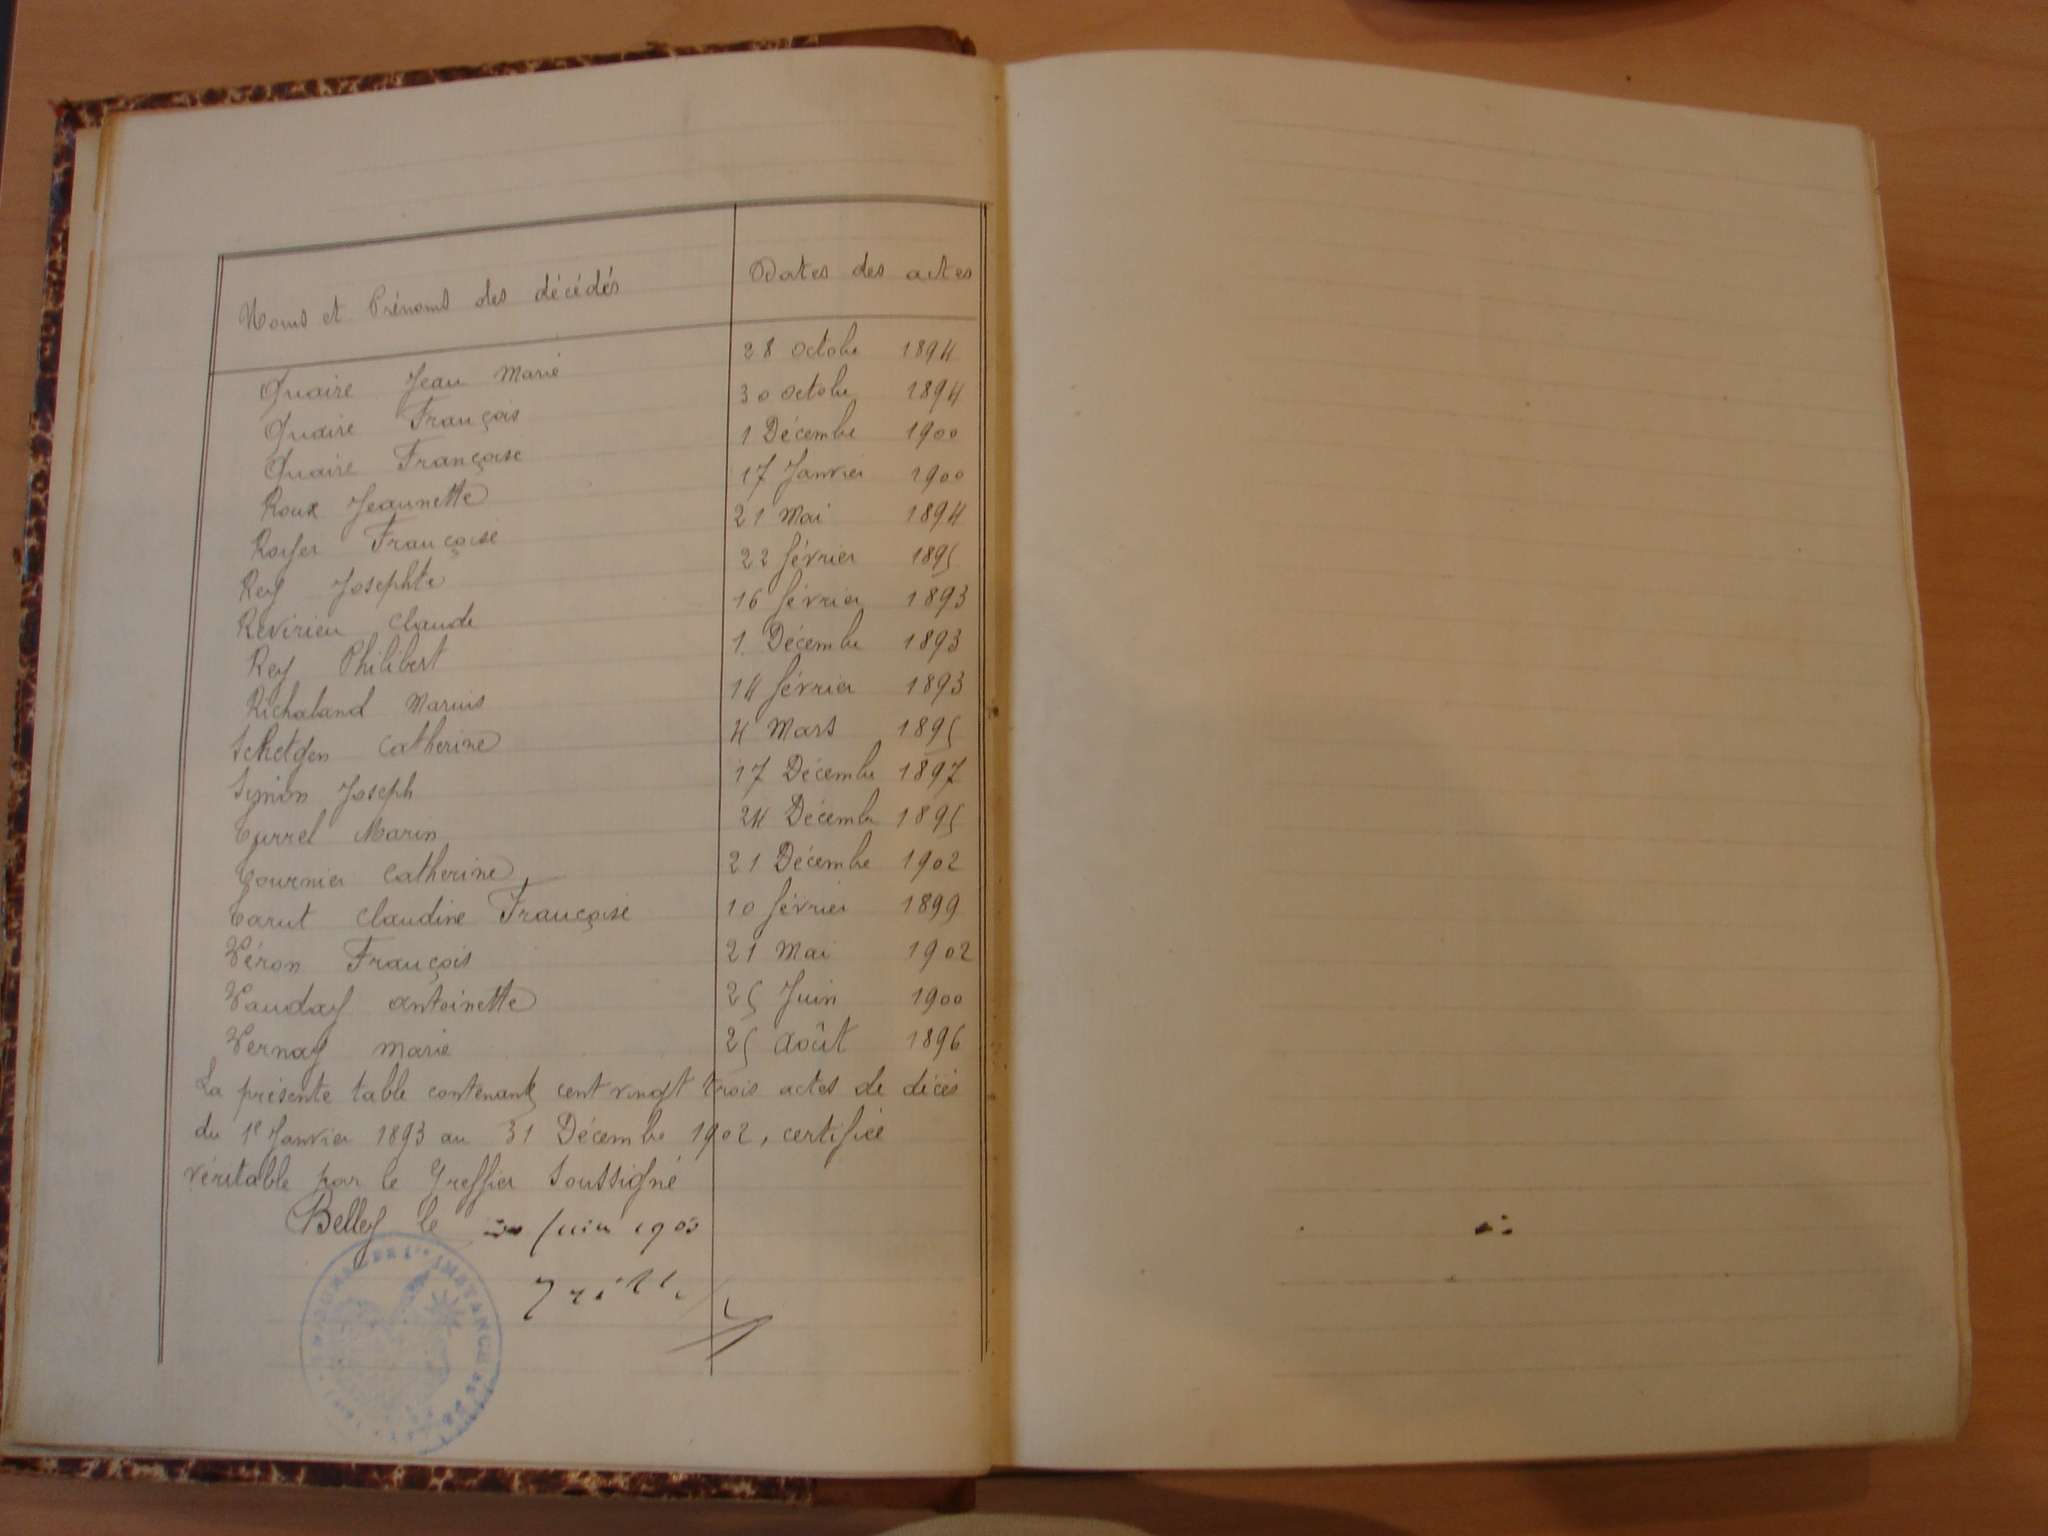 Noms et Prénoms des décédés Dates des actes
Quaire Jean Marie 28 octobre 1894
Quaire François 30 octobre 1894
Quaire Françoise 1 Décembre 1900
Roux Jeannette 17 Janvier 1900
Royer Françoise 21 Mai 1894
Rey Josephte 22 février 1895
Revirieu Claude 16 février 1893
Rey Philibert 1 Décembre 1893
Richaland Marius 14 février 1893
Schetgen Catherine 4 Mars 1895
Simon Joseph 17 Décembre 1897
Turrel Marin 24 Décembre 1895
Tournier Catherine 21 Décembre 1902
Tarut Claudine Françoise 10 février 1899
Véron François 21 Mai 1902
Vauday antoinette 25 Juin 1900
Vernay marie 25 août 1896
La présente table contenant cent vingt trois actes de décès
du 1er Janvier 1893 au 31 Décembre 1902, certifiée
véritable par le Greffier Soussigné
Belley le Juin 1903
INSTANCE